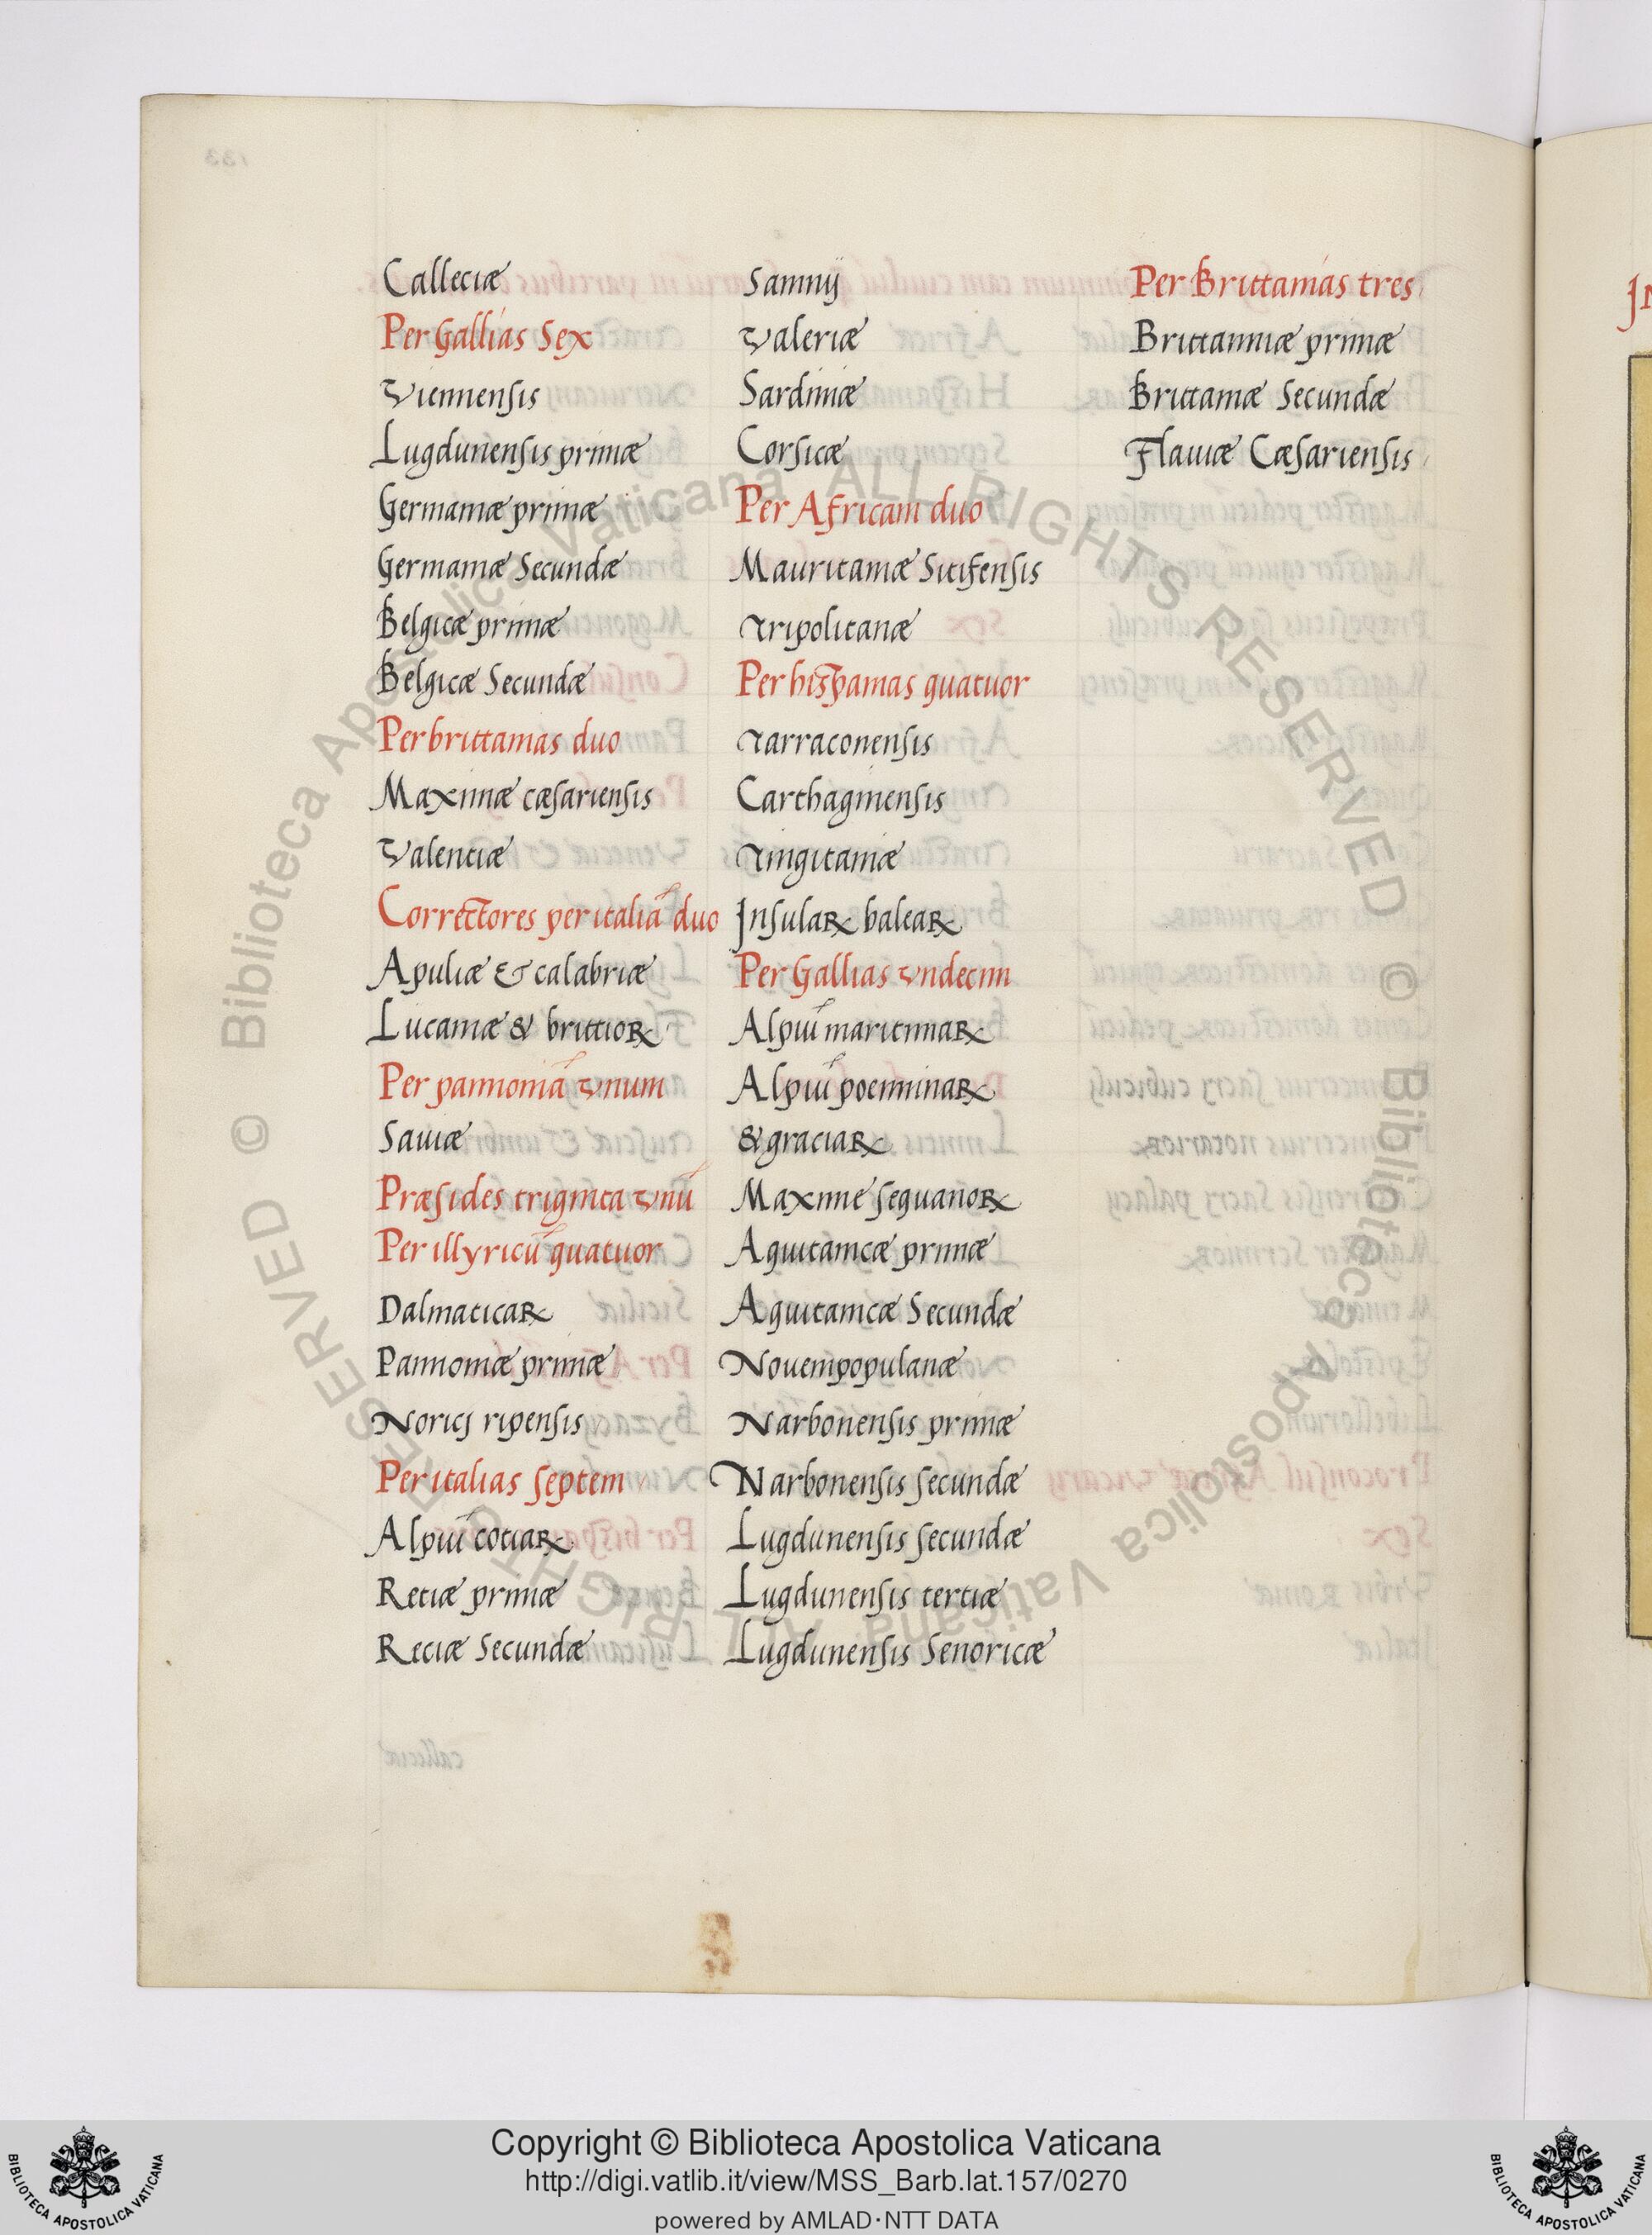 Calleciæ
Per Gallias Sex
Viennensis
Lugdunensis primæ
Germaniæ primæ
Germaniæ Secundæ
Belgicæ primæ
Belgicæ Secundæ
Per brittanias duo
Maximæ cæsariensis
Valentiæ
Correctores per italiā duo
Apuliæ & calabriæ
Lucaniæ & brittioꝝ
Per pannoniā vnum
Saviæ
Præsides triginta vnū
Per illyricū quatuor
Dalmaticaꝝ
Pannoniæ primæ
Noricj ripensis
Per italias septem
Alpiū cotiaꝝ
Retiæ primæ
Reciæ Secundæ
Samnij
Valeriæ
Sardiniæ
Corsicæ
Per Africam duo
Mauritaniæ Sitifensis
Tripolitanæ
Per hispanias quatuor
Tarraconensis
Carthaginensis
Tingitaniæ
Insulaꝝ baleaꝝ
Per Gallias vndecim
Alpiū maritimaꝝ
Alpiū poenninaꝝ
& graciaꝝ
Maxime sequanoꝝ
Aquitanicæ primæ
Aquitanicæ Secundæ
Nouempopulanæ
Narbonensis primæ
Narbonensis secundæ
Lugdunensis secundæ
Lugdunensis tertiæ
Lugdunensis Senonicæ
Per Brittanias tres
Brittanniæ primæ
Brittaniæ Secundæ
Flauiæ Cæsariensis
© Biblioteca Apostolica Vaticana ALL RIGHTS RESERVED
© Biblioteca Apostolica Vaticana ALL RIGHTS RESERVED
Copyright © Biblioteca Apostolica Vaticana
http://digi.vatlib.it/view/MSS_Barb.lat.157/0270
powered by AMLAD·NTT DATA
BIBLIOTECA APOSTOLICA VATICANA
BIBLIOTECA APOSTOLICA VATICANA